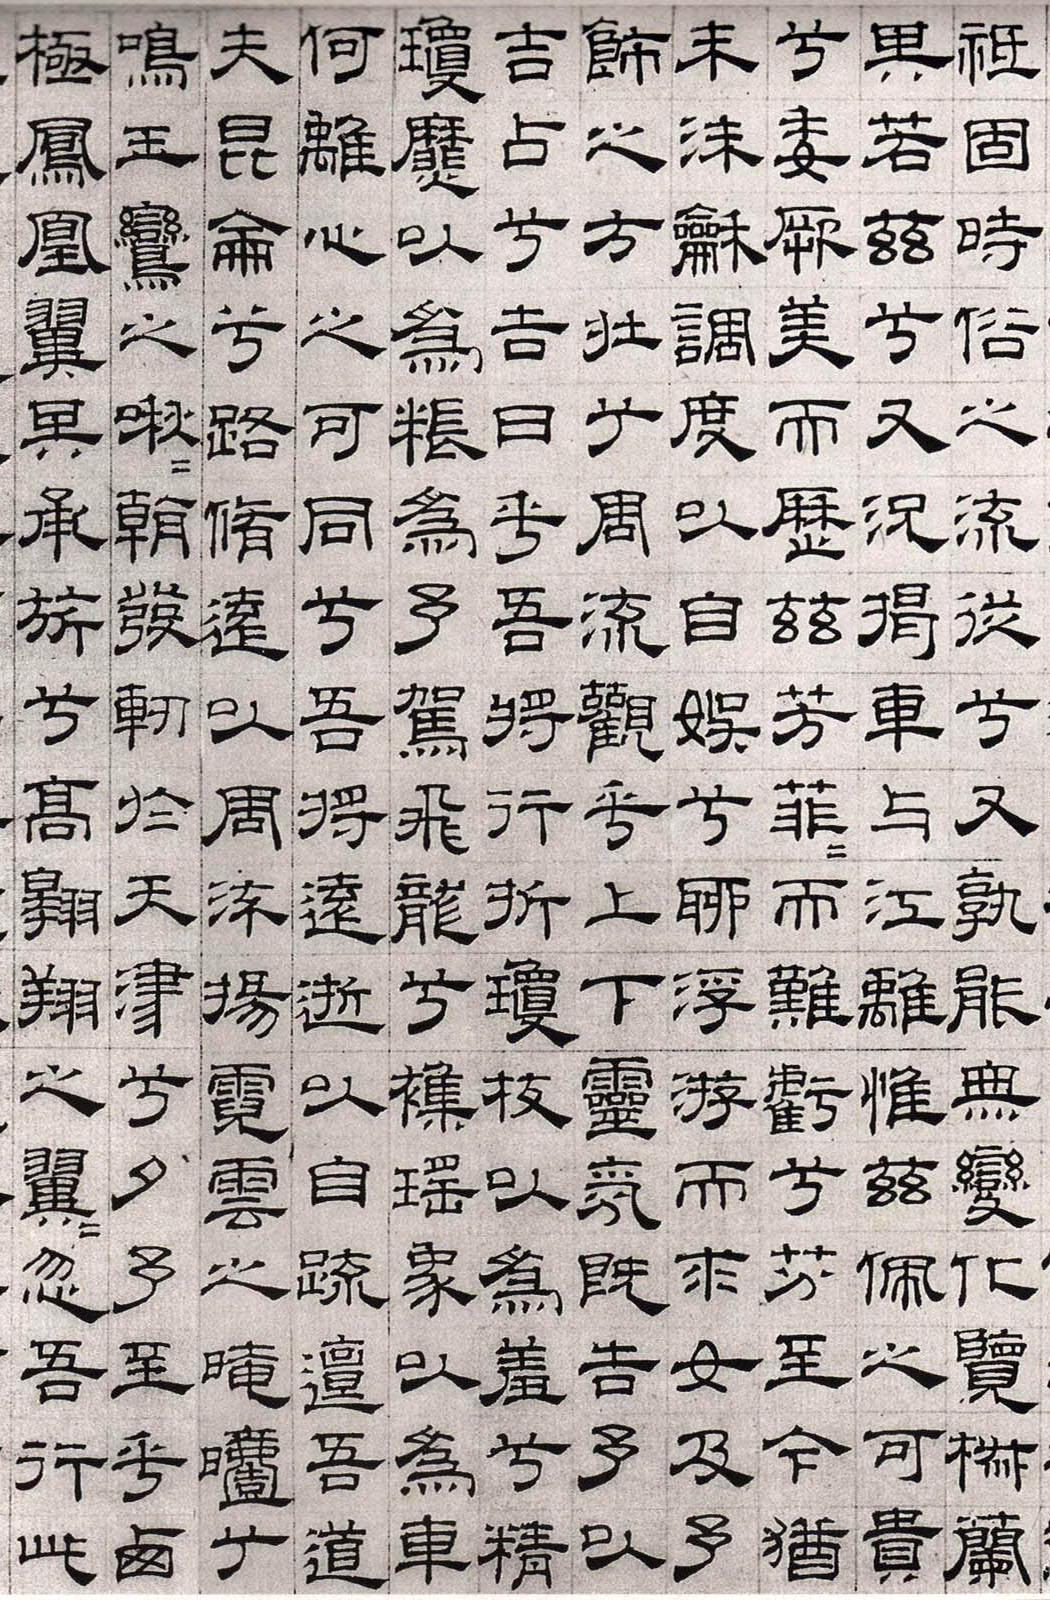 祗固時俗之流從兮又孰能無變化覽椒蘭
其若茲兮又況揭車与江離惟茲佩之可貴
兮委厥美而歷茲芳菲=而難虧兮芬至今猶
未沬龢調度以自娛兮聊浮游而求女及予
飾之方壯兮周流觀乎上下靈氛既告予以
吉占兮吉日乎吾將行折瓊枝以爲羞兮精
瓊爢以爲粻爲予駕飛龍兮襍瑤象以爲車
何離心之可同兮吾將遠逝以自疏邅吾道
夫昆侖兮路脩遠以周流揚霓雲之晻兮
鳴玉鸞之啾=朝發軔於天津兮夕予至乎西
極鳳凰翼其承旂兮高翱翔之翼=忽吾行此